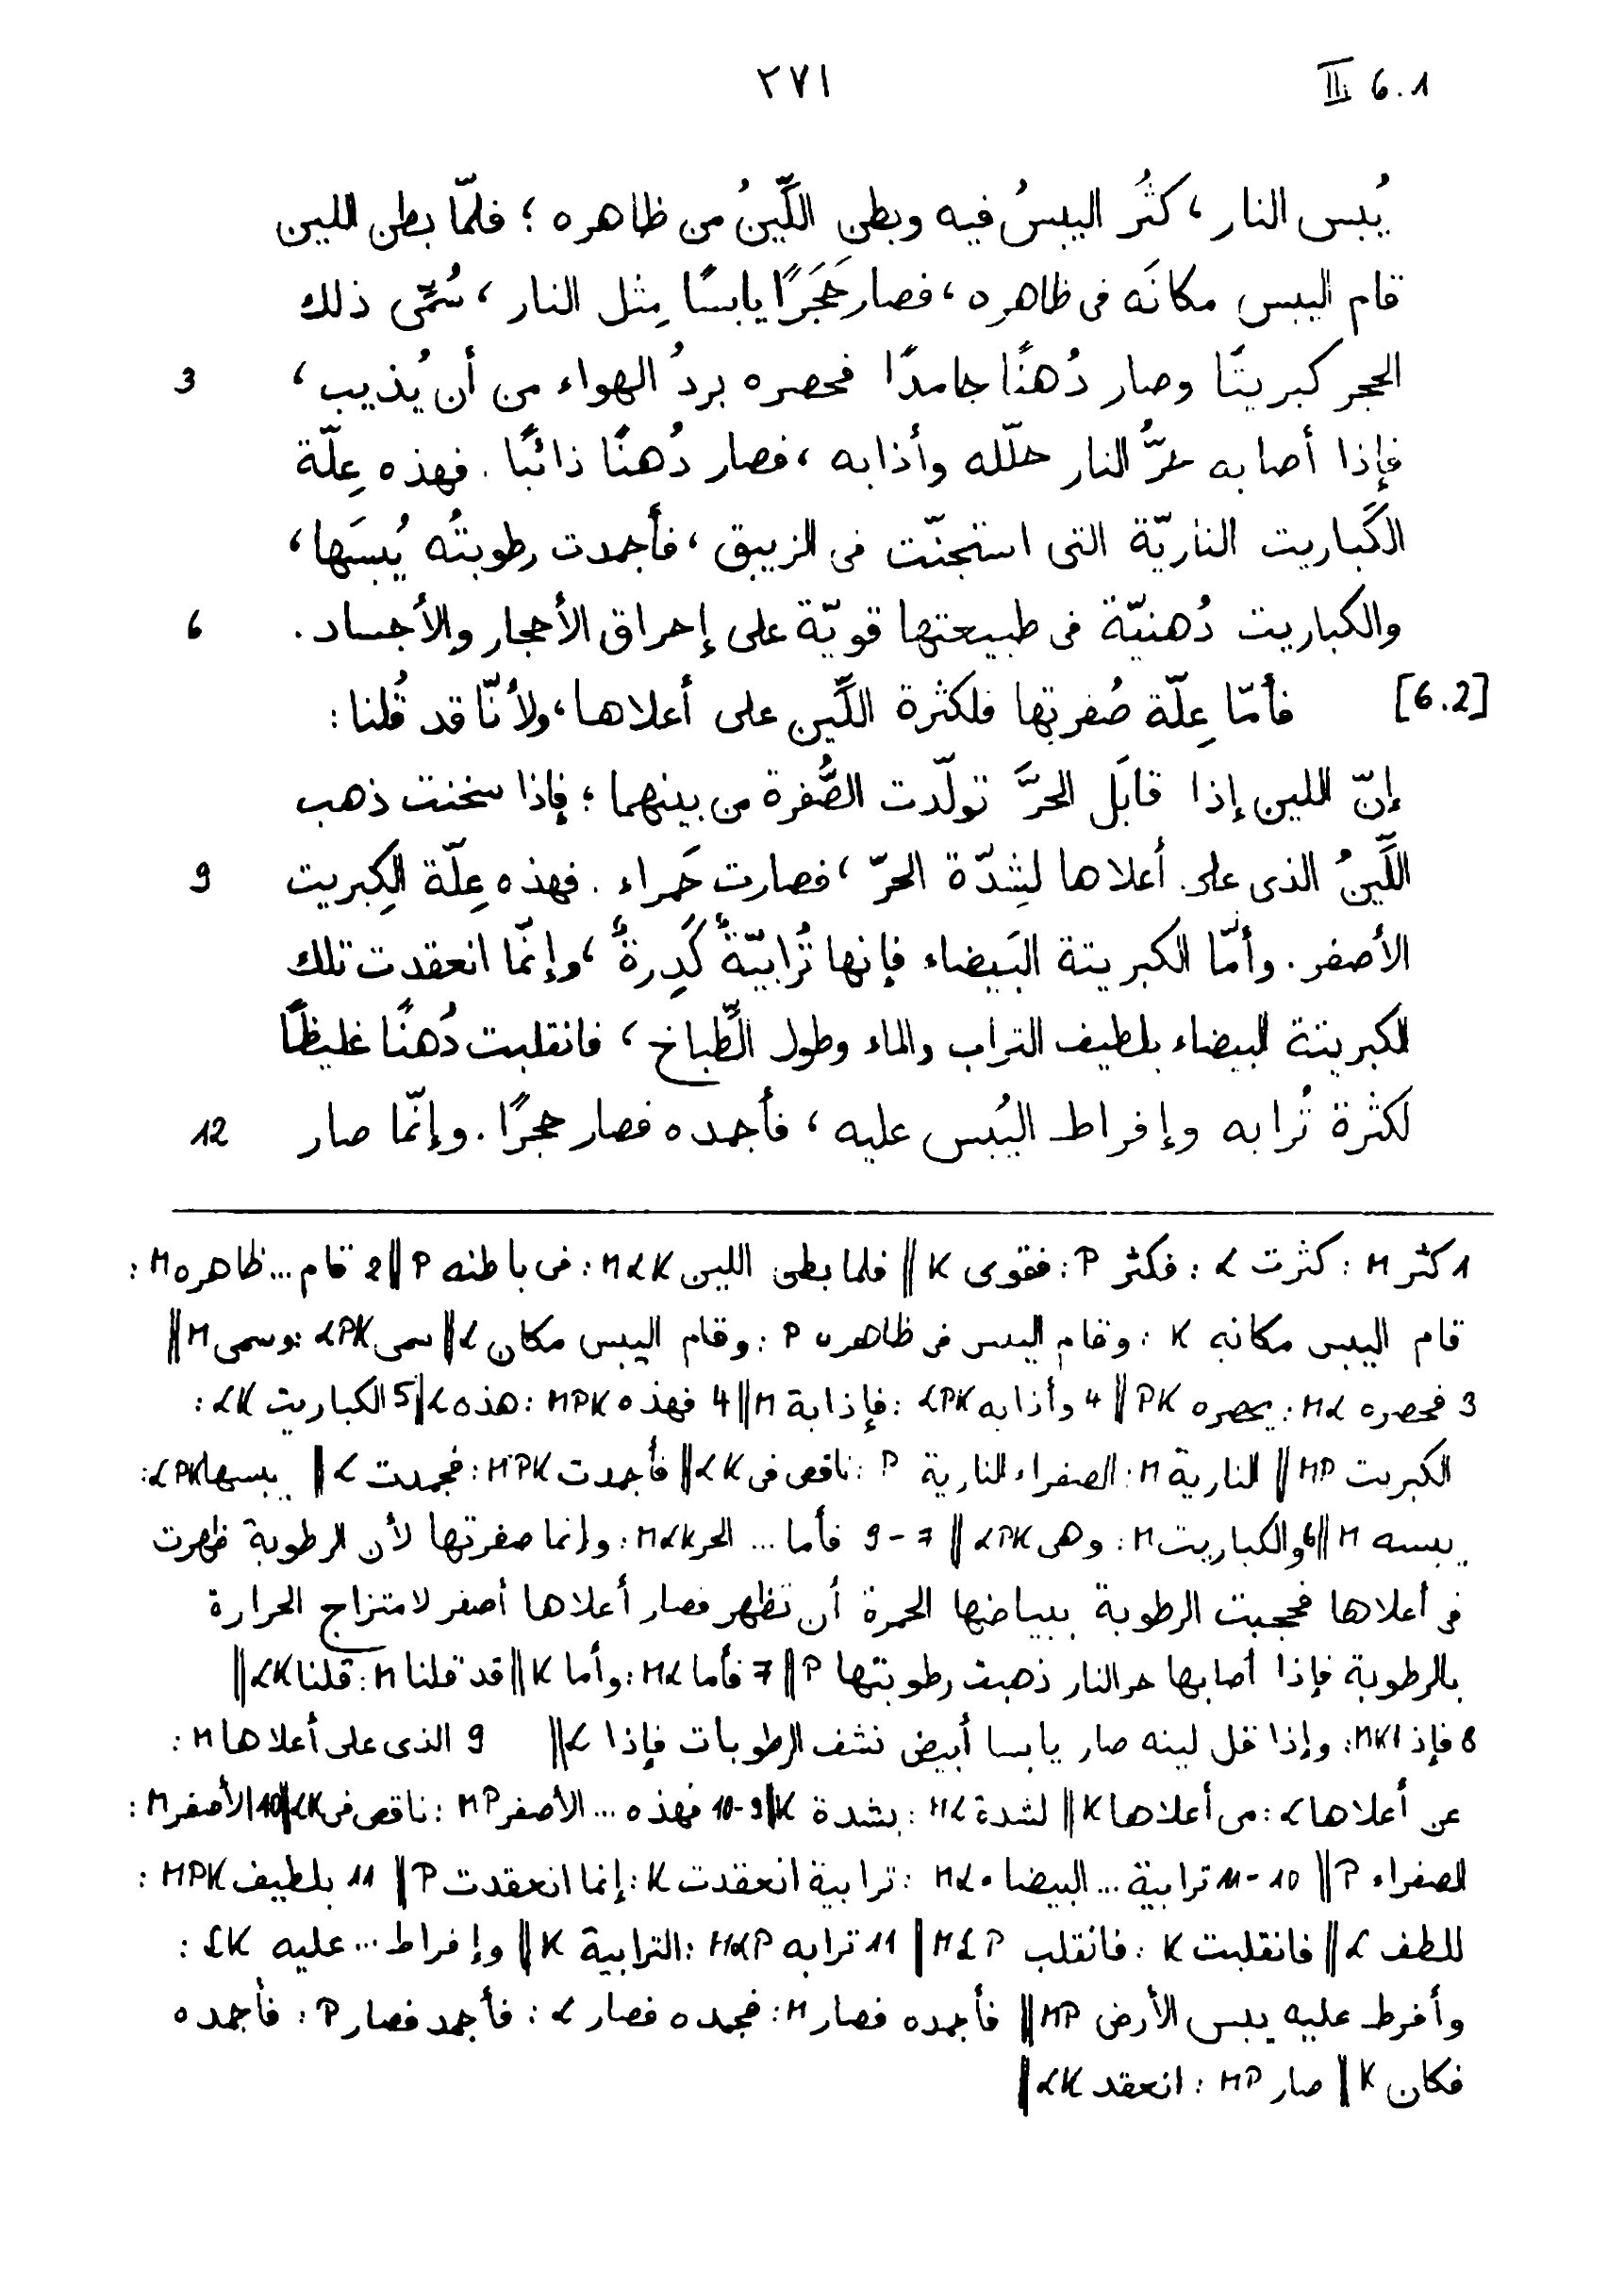 ٢٧١ III 6.1
يُبس النار، كثُر اليبسُ فيه وبطن اللِّينُ من ظاهره؛ فلمّا بطن اللين
قام اليبس مكانَه فى ظاهره، فصار حَجَرًا يابسًا مِثل النار، سُمِّى ذلك
الحجر كبريتًا وصار دُهنًا جامدًا فحصره بردُ الهواء من أن يُذيب، 3
فإذا أصابه حرُّ النار حلّله وأذابه، فصار دُهنًا ذائبًا. فهذه عِلّة
الكَباريت الناريّة التى استجنّت فى الزيبق، فأجمدت رطوبتُه يُبسَها،
والكباريت دُهنيّة فى طبيعتها قويّة على إحراق الأحجار والأجساد. 6
[6.2] فأمّا عِلّة صُفرتها فلكثرة اللِّين على أعلاها، ولأنّا قد قُلنا:
إنّ اللين إذا قابَل الحرَّ تولّدت الصُّفرة من بينهما؛ فإذا سخنت ذهب
اللِّينُ الذى على أعلاها لشِدّة الحرّ، فصارت حَمراء. فهذه عِلّة الكِبريت 9
الأصفر. وأمّا الكبريتة البَيضاء فإنها تُرابيّةٌ كَدِرةٌ، وإنّما انعقدت تلك
الكبريتة البيضاء بلطيف التراب والماء وطول الطِّباخ، فانقلبت دُهنًا غليظًا
لكثرة تُرابه وإفراط اليُبس عليه، فأجمده فصار حجرًا. وإنّما صار 12
1 كثر M: كثرت L: فكثر P: فقوى K || فلما بطن اللين MLK: فى باطنه P || 2 قام... ظاهره M:
قام اليبس مكانه K: وقام اليبس فى ظاهره P: وقام اليبس مكان L || سمى LPK: وسمى M ||
3 فحصره ML: يحصره PK || 4 وأذابه LPK: فإذابة M || 4 فهذه MPK: هذه L || 5 الكباريت LK:
الكبريت MP || النارية M: الصفراء النارية P: ناقص فى LK || فأجمدت MPK: فجمدت L || يبسها LPK:
يبسه M || 6 والكباريت M: وهى LPK || 7-9 فأما... الحر MLK: وإنما صفرتها لأن الرطوبة ظهرت
فى أعلاها فحجبت الرطوبة ببياضها الحمرة أن تظهر فصار أعلاها أصفر لامتزاج الحرارة
بالرطوبة فإذا أصابها حر النار ذهبت رطوبتها P || 7 فأما ML: وأما K || قد قلنا M: قلنا LK ||
8 فإذا MK: وإذا قل لينه صار يابسا أبيض نشف الرطوبات فإذا L || 9 الذى على أعلاها M:
عن أعلاها L: من أعلاها K || لشدة ML: بشدة K || 9-10 فهذه... الأصفر MP: ناقص فى LK || 10 الأصفر M:
الصفراء P || 10-11 ترابية... البيضاء ML: ترابية انعقدت K: إنما انعقدت P || 11 بلطيف MPK:
للطف L || فانقلبت K: فانقلب MLP || 11 ترابه MLP: الترابية K || وإفراط... عليه LK:
وأفرط عليه يبس الأرض MP || فأجمده فصار M: فجمده فصار L: فأجمد فصار P: فأجمده
فكان K || صار MP: انعقد LK ||